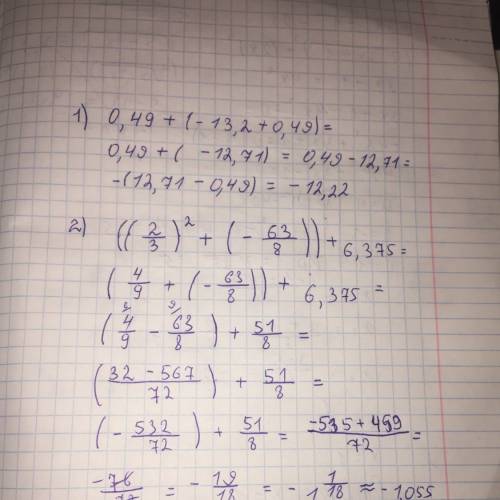 1) 0,49 + (-13,2 + 0,49) =
0,49 + ( -12,71) = 0,49 - 12,71 =
-(12,71 - 0,49) = -12,22
2) ((2/3)² + (-63/8)) + 6,375 =
(4/9 + (-63/8)) + 6,375 =
(4/9 - 63/8) + 51/8 =
((32 - 567)/72) + 51/8 =
(-532/72) + 51/8 = (-535 + 459)/72 =
-76/72 = -19/18 = -1 1/18 ≈ -1,055